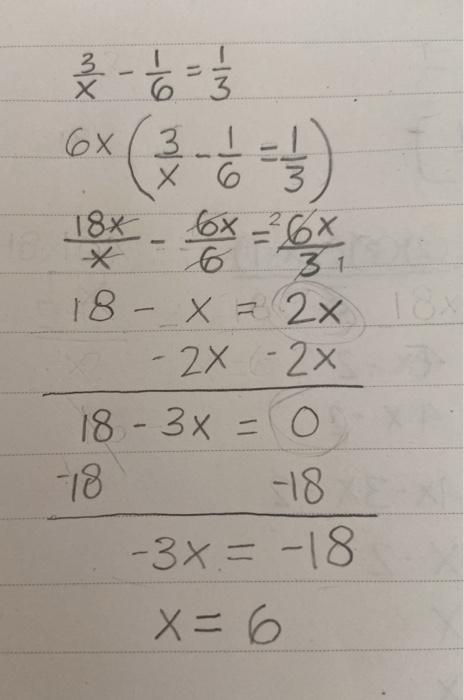 3/x - 1/6 = 1/3
6x(3/x - 1/6 = 1/3)
18x/x - 6x/6 = ²6x/3 1
18 - x = 2x
- 2x - 2x
18 - 3x = 0
-18 -18
-3x = -18
x = 6